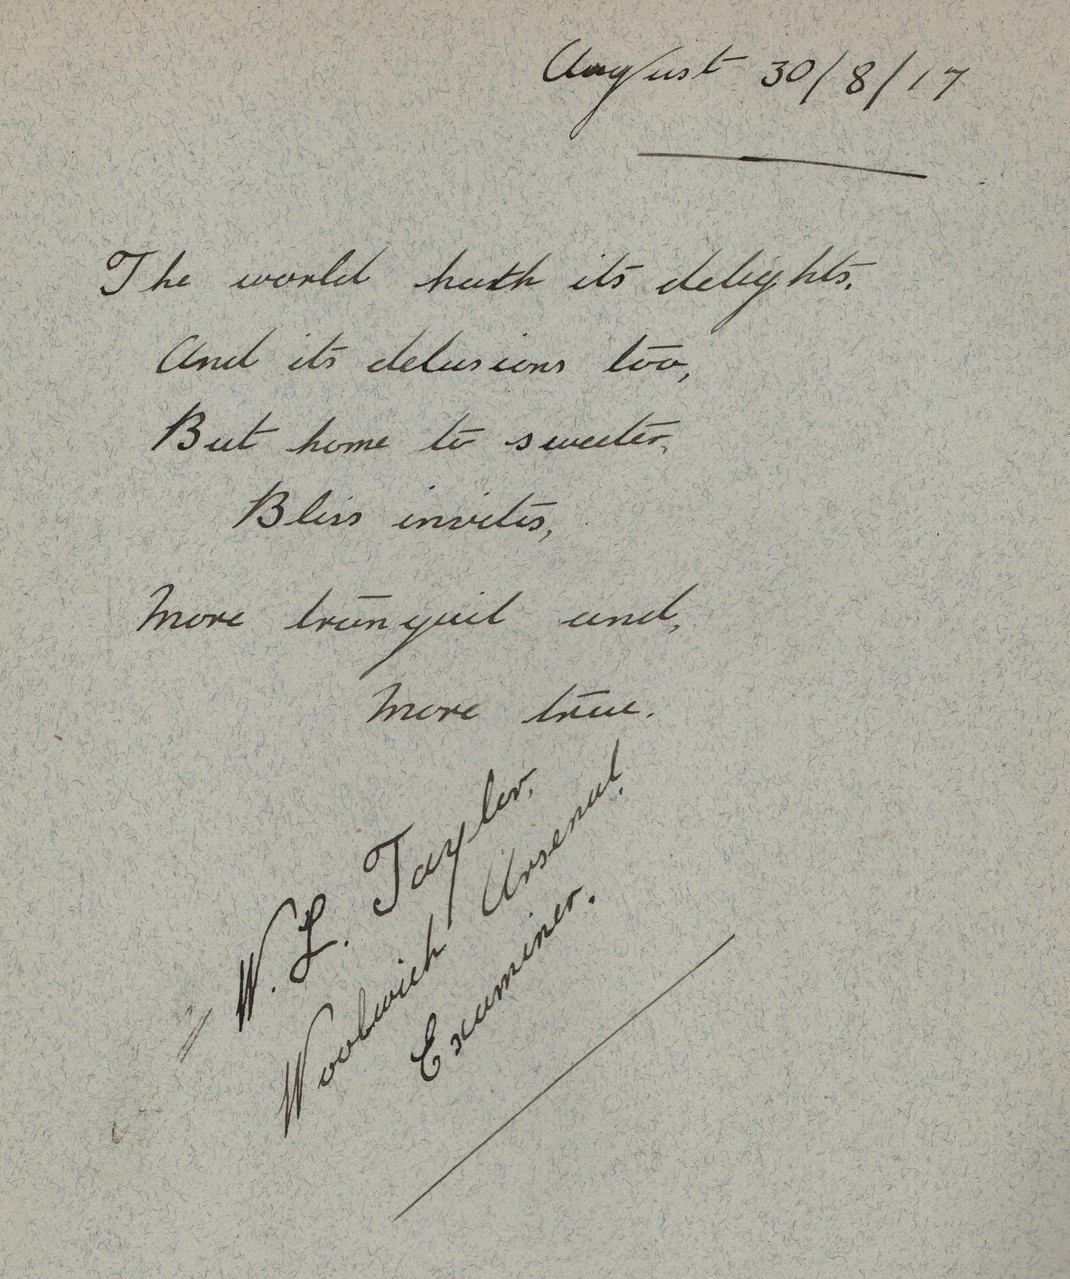 August 30/8/17
The world hath its delights.
And its delusions too,
But home to sweeter,
Bliss invites,
More tranquil and,
More true.
W. L. Taylor,
Woolwich Arsenal.
Examiner.